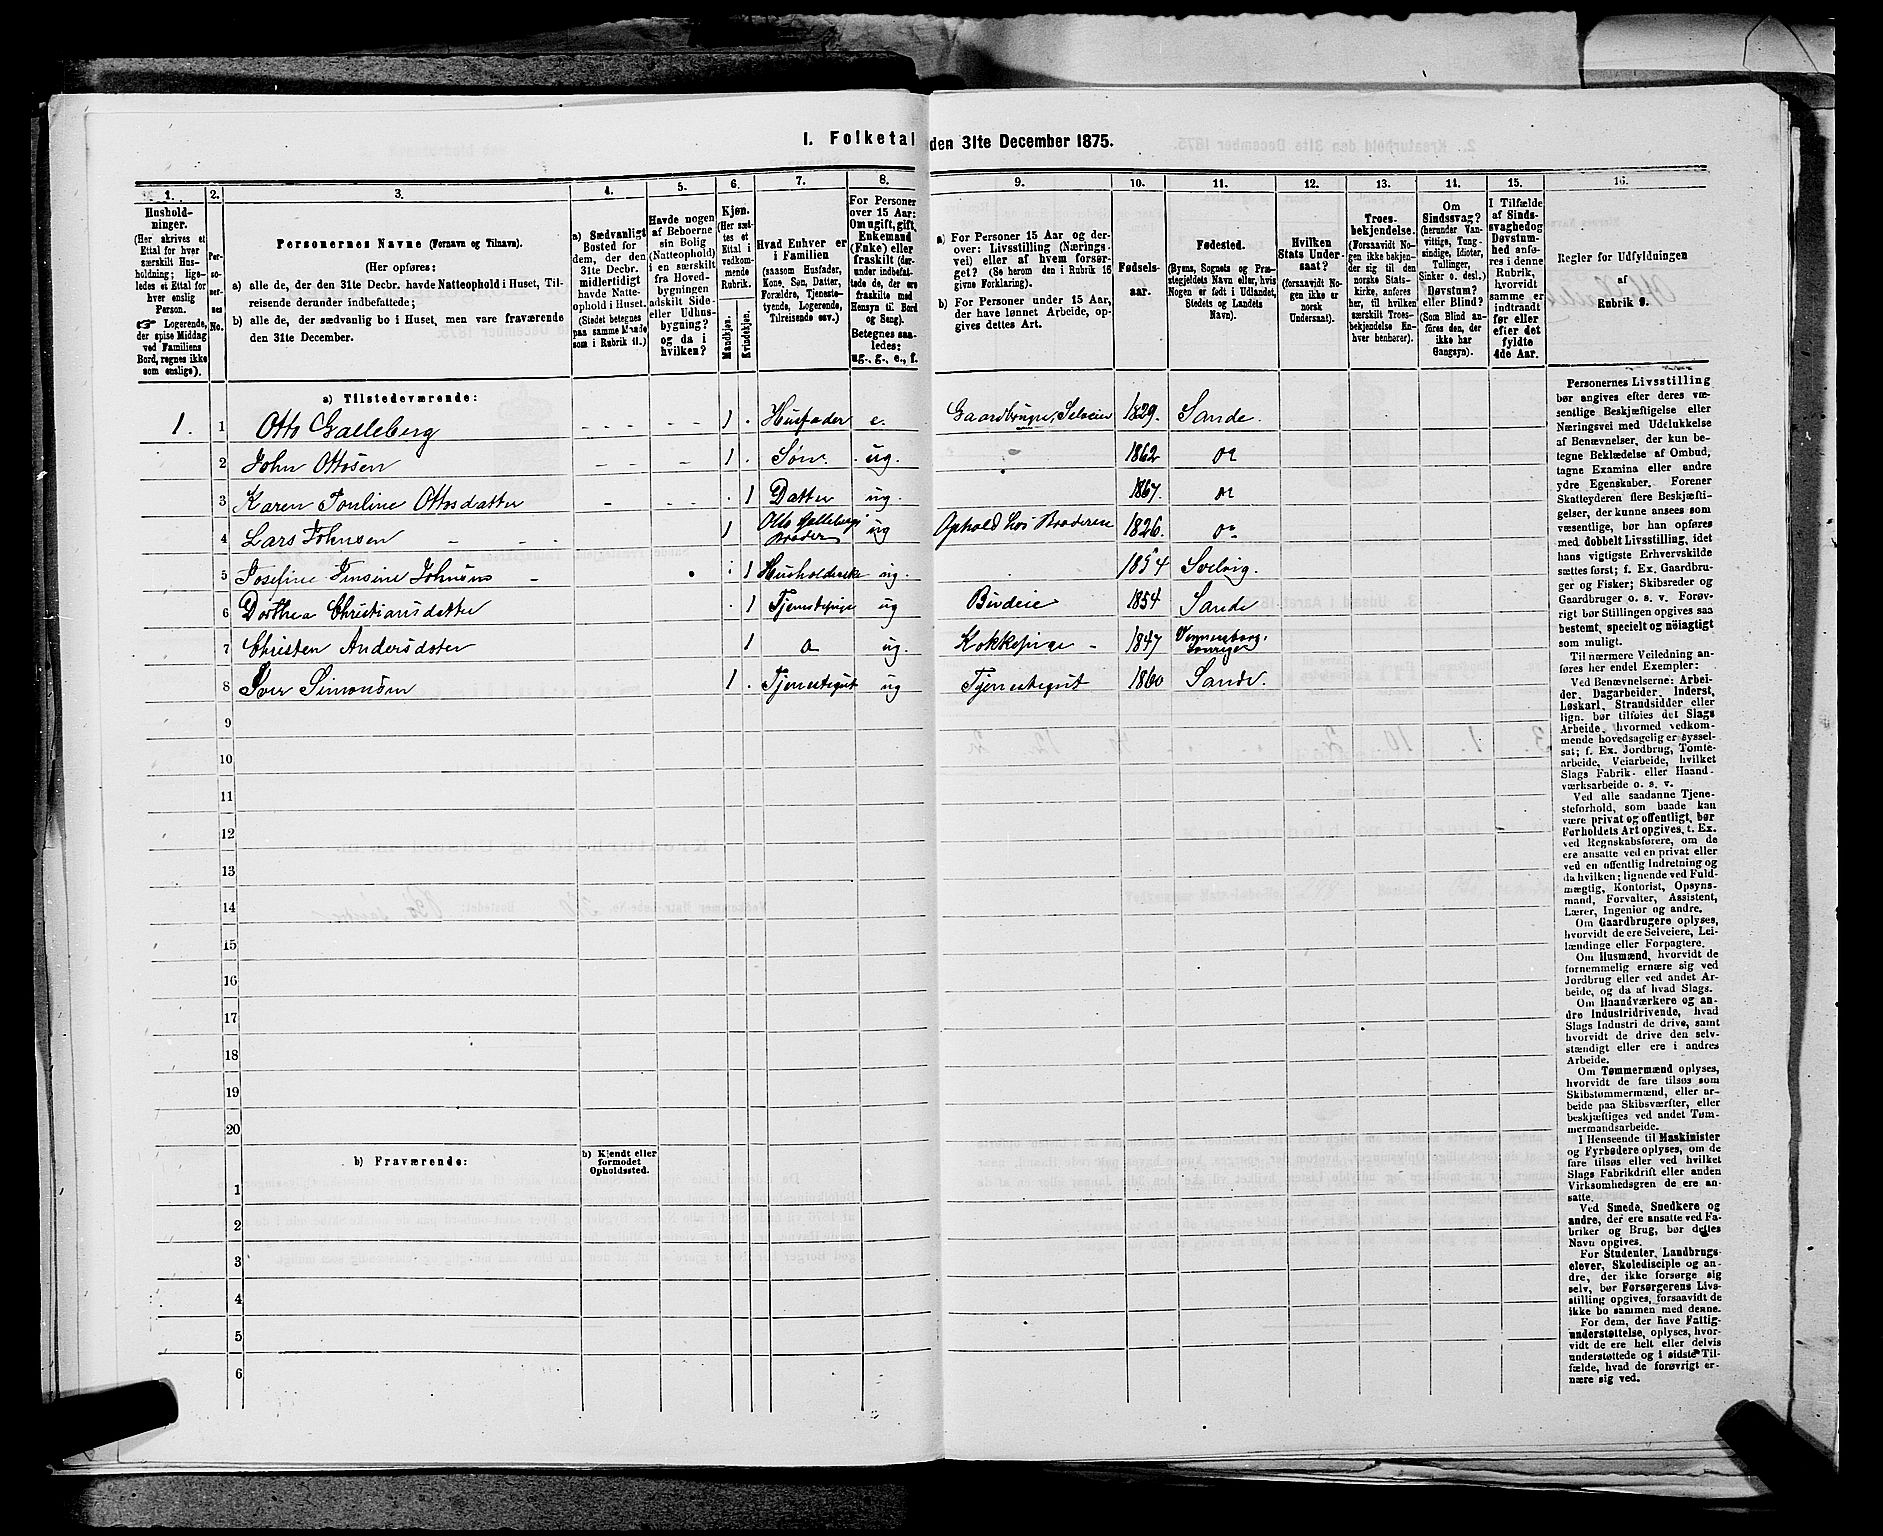 1. Folketal den 31te December 1875.
1. 2. 3. 4. 5. 6. 7. 8. 9. 10. 11. 12. 13. 14. 15. 16.
Hushold-
ninger.
(Her skrives et
Ettal for hver
særskilt Hus-
holdning; lige-
ledes et Ettal for
hver enslig
Person.
☞ Logerende,
der spise Middag
ved Familiens
Bord, regnes ikke
som enslige).
Per-
so-
ner-
nes
No.
Personernes Navne (Fornavn og Tilnavn).
(Her opføres:
a) alle de, der den 31te Decbr. havde Natteophold i Huset, Til-
reisende derunder indbefattede;
b) alle de, der sædvanlig bo i Huset, men vare fraværende
den 31te December.
a) Sædvanligt
Bosted for
dem, der den
31te Decbr.
midlertidigt
havde Natte-
ophold i Huset.
(Stedet betegnes
paa samme Maade
som i Rubrik 11.)
Havde nogen
af Beboerne
sin Bolig
(Natteophold)
i en særskilt
fra Hoved-
bygningen
adskilt Side-
eller Udhus-
bygning?
og da i
hvilken?
Kjøn.
(Her sæt-
tes et
Ettal i
vedkom-
mende
Rubrik.
Mandkjøn.
Kvindekjøn.
Hvad Enhver er
i Familien
(saasom Husfader,
Kone, Søn, Datter,
Forældre, Tjeneste-
tyende, Logerende,
Tilreisende osv.)
For Personer
over 15 Aar:
Om ugift, gift,
Enkemand
(Enke) eller
fraskilt (der-
under indbefat-
tede de, som
ere fraskilte med
Hensyn til Bord
og Seng).
Betegnes saa-
ledes:
ug., g., e., f.
a) For Personer 15 Aar og der-
over: Livsstilling (Nærings-
vei) eller af hvem forsør-
get? (Se herom den i Rubrik 16
givne Forklaring).
b) For Personer under 15 Aar,
der have lønnet Arbeide, op-
gives dettes Art.
Fødsels-
aar.
Fødested.
(Byens, Sognets og Præ-
stegjeldets Navn eller, hvis
Nogen er født i Udlandet,
Stedets og Landets
Navn).
Hvilken
Stats Under-
saat?
(forsaavidt No-
gen ikke er
norsk
Undersaat).
Troes-
bekjendelse.
(Forsaavidt No-
gen ikke bekjen-
der sig til den
norske Stats-
kirke, anføres
her, til hvilken
særskilt Troes-
bekjendelse En-
hver henhører).
Om
Sindssvag?
(herunder Van-
vittige, Tung-
sindige, Idioter,
Tullinger,
Sinker o. desl.)
Døvstum?
eller Blind?
(Som Blind an-
føres den, der
ikke har
Gangsyn).
I Tilfælde
af Sinds-
svaghed og
Døvstum-
hed anfø-
res i denne
Rubrik,
hvorvidt
samme er
indtraadt
før eller
efter det
fyldte
4de Aar.
Regler for Udfyldningen
af
Rubrik 9.
a) Tilstedeværende:
1. 1 Otto Galleberg 1 Husfader e. Gaardbruger, Selveier 1829. Sande.
2 John Ottosen 1 Søn ug. 1862 do
3 Karen Pauline Ottosdatter 1 Datter ug. 1867. do
4 Lars Johnsen 1 Otto Gallebergs Broder ug Ophold hos Broderen 1826. do
5 Josefine Jensine Johnsns 1 Husholderske ug. 1854 Svelvig.
6 Dorthea Christiansdatter 1 Tjenestepige ug Budeie 1854 Sande
7 Christen Andersdater 1 do ug. Kokkepige 1847 Vennersborg. Sverige
8 Iver Simonsen 1 Tjenestegut ug Tjenestegut 1860 Sande.
9
10
11
12
13
14
15
16
17
18
19
20
b) Fraværende:
b) Kjendt eller
formodet
Opholdssted.
1
2
3
4
5
6
Personernes Livsstilling
bør angives efter deres væ-
sentlige Beskjæftigelse eller
Næringsvei med Udelukkelse
af Benævnelser, der kun be-
tegne Beklædelse af Ombud,
tagne Examina eller andre
ydre Egenskaber. Forener
Skatteyderen flere Beskjæfti-
gelser, der kunne ansees som
væsentlige, bør han opføres
med dobbelt Livsstilling, idet
hans vigtigste Erhvervskilde
sættes først; f. Ex. Gaardbru-
ger og Fisker; Skibsreder og
Gaardbruger o. s. v. Forøv-
rigt bør Stillingen opgives saa
bestemt, specielt og nøiagtigt
som muligt.
Til nærmere Veiledning an-
føres her endel Exempler:
Ved Benævnelserne: Arbei-
der, Dagarbeider, Inderst,
Løskarl, Strandsidder eller
lign. bør tilføies det Slags
Arbeide, hvormed vedkom-
mende hovedsagelig er syssel-
sat; f. Ex. Jordbrug, Tomte-
arbeide, Veiarbeide, hvilket
Slags Fabrik- eller Haand-
værksarbeide o. s. v.
Ved alle saadanne Tjene-
steforhold, som baade kan
være privat og offentligt, bør
Forholdets Art opgives, t. Ex.
ved Regnskabsførere, om de
ere ansatte ved en privat eller
ved en offentlig Indretning og
da hvilken; lignende ved Fuld-
mægtig, Kontorist, Opsyns-
mand, Forvalter, Assistent,
Lærer, Ingeniør og andre.
Om Gaardbrugere oplyses,
hvorvidt de ere Selveiere, Lei-
lændinge eller Forpagtere.
Om Husmænd, hvorvidt de
fornemmelig ernære sig ved
Jordbrug eller ved andet Ar-
beide, og da af hvad Slags.
Om Haandværkere og an-
dre Industridrivende, hvad
Slags Industri de drive, samt
hvorvidt de drive den selv-
stændigt eller ere i andres
Arbeide.
Om Tømmermænd oplyses,
hvorvidt de fare tilsøs som
Skibstømmermænd, eller ar-
beide paa Skibsværfter, eller
beskjæftiges ved andet Tøm-
mermandsarbeide.
I Henseende til Maskinister
og Fyrbødere oplyses, om de
fare tilsøs eller ved hvilket
Slags Fabrikdrift eller anden
Virksomhedsgren de ere an-
satte.
Ved Smede, Snedkere og
andre, der ere ansatte ved Fa-
briker og Brug, bør dettes
Navn opgives.
For Studenter, Landbrugs-
elever, Skoledisciple og an-
dre, der ikke forsørge sig
selv, bør Forsørgerens Livs-
stilling opgives, forsaavidt de
ikke bo sammen med denne.
For dem, der have Fattig-
understøttelse, oplyses, hvor-
vidt de ere helt eller delvis
understøttede og i sidste Til-
fælde, hvad de forøvrigt er-
nære sig ved.